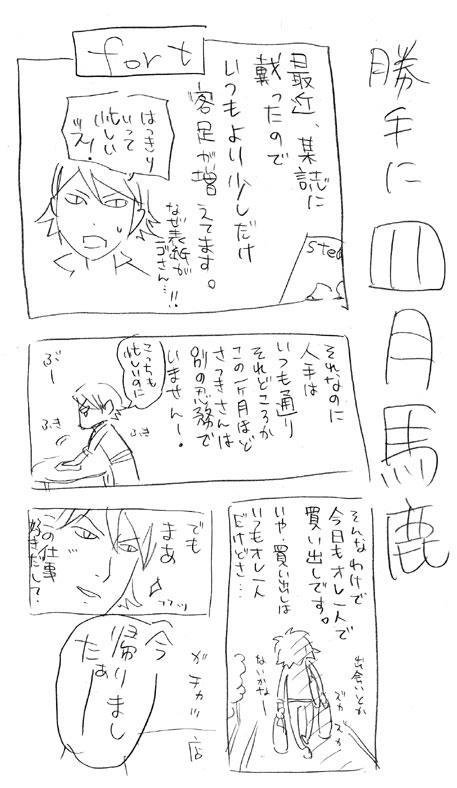 勝手に四月馬鹿
fort
最近、某誌に
載ったので
いつもより少しだけ
客足が増
えてます。
なぜ表紙が
ゴさん…!!
はっきり
いって
忙しい
ッス!
stea
それなのに
人手は
いつも通り
それどころか
この一ヶ月ほど
さつきさんは
別の忍務で
いません!
こっちも
忙しいのに
ぶー
ふき
ふき
そんなわけで
今日もオレ一人で
買い出しです。
いや、買い出しは
いつもオレ一人
だけどさ…
出会いとか
ないかなー
ズカ
ズカ
でも
まあ
この仕事
好きだして?
フフッ
ガチャッ
店
今
帰りまし
たぁ